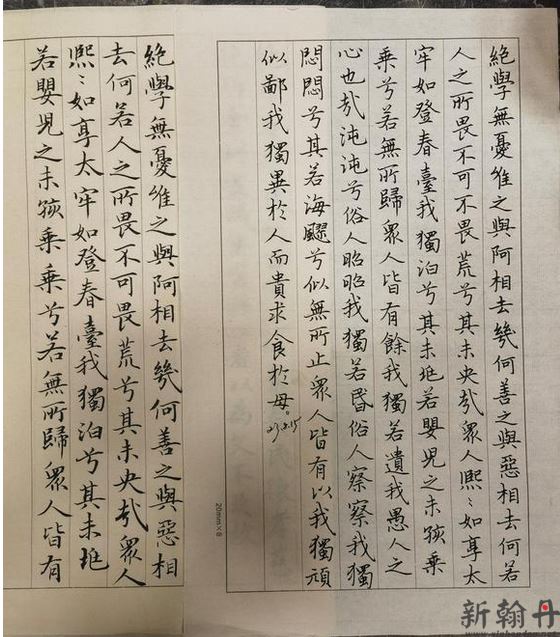 絕學無憂維之與阿相去幾何善之與惡相去何若
人之所畏不可不畏荒兮其未央哉眾人熙〻如享太
牢如登春臺我獨泊兮其未垗若嬰兒之未孩乘
乘兮若無所歸眾人皆有餘我獨若遺我愚人之
心也哉沌沌兮俗人昭昭我獨若昬俗人察察我獨
悶悶兮其若海飂兮似無所止眾人皆有以我獨頑
似鄙我獨異於人而貴求食於母。
20mm×8
絕學無憂維之與阿相去幾何善之與惡相
去何若人之所畏不可畏荒兮其未央哉眾人
熙〻如享太牢如登春臺我獨泊兮其未垗
若嬰兒之未孩乘乘兮若無所歸眾人皆有
新翰丹